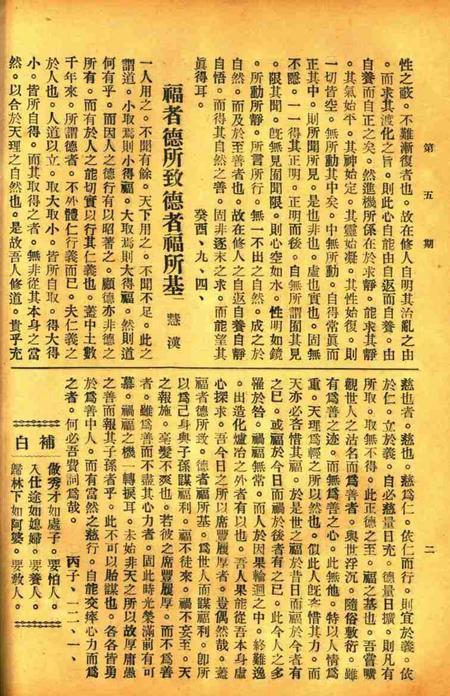 第五期
二
性之蔽。不難漸復者也。故在修人自明其治亂之由
。而求其渡化之旨。則此心自能由自返而自養。由
自養而自正之矣。然進機所係在於求靜。能求其靜
。其氣始平。其神始定。其靈始凝。其性始復。則
一切皆空。無所動其中矣。中無所動。自得常眞而
正其中。則所聞所見。是也非也。虛也實也。固無
不隱。一一得其正明。正明而後。自無所謂囿其見
。限其聞。旣無見囿聞限。則心空如水。性明如鏡
。所動所靜。所言所行。無一不出之自然。成之於
自然。而及於至善者也。故在修人之自返自養自靜
自悟。而得其自然之善。固非逐末之求。而能望其
眞得耳。
癸酉、九、四、
福者德所致德者福所基
慧漢
一人用之。不聞有餘。天下用之。不聞不足。此之
謂道。小取焉則小得福。大取焉則大得福。然則道
何有乎。而因人之德行有以昭著之。顧德亦非德之
所有。而有於人之能切實以行其仁義也。蓋中土數
千年來。所謂德者。不外體仁行義而已。夫仁義之
於人也。人道以立。取大取小。皆所自取。得大得
小。皆所自得。而其取得之者。無非從其本身之當
然。以合於天理之自然也。是故吾人修道。貴乎充
慈也者。慈也。慈爲仁。依仁而行。則宜於義。依
於仁。立於義。自必慈量日充。德量日擴。則凡有
所取。取無不得。此正德之至。福之基也。吾嘗曠
觀世人之沽名而爲善者。與世浮沉。隨俗敷衍。雖
有爲善之迹。而無爲善之心。此無他。特以人情爲
重。天理爲輕之所以然也。似此人旣吝惜其力。而
天亦必吝惜其福。於是世之福於昔日而福於今者有
之巳。或福於今日而禍於後者有之巳。此今人之多
罹於咎。禍福無常。而人於因果輪迴之中。終難逸
。出造化爐冶之外者有以也。吾人果能從吾本身虛
心探求。吾今日之所以席豐履厚者。豈偶然哉。蓋
福者德所致。德者福所基。爲世人而謀福利。卽所
以爲己身與子孫謀福利。福不徒來。禍不妄至。天
之報施。毫髮不爽也。若彼之席豐履厚。而不爲善
者。雖爲善而不盡其心力者。固此時光榮滿前有可
慕。禍福之機一轉捩耳。未始非天之所以故厚庸愚
之善而報其子孫者乎。此不可以貽謀也。各各皆勇
於爲善中人。而有當然之慈行。自能交瘁心力而爲
之者。何必吾費詞爲哉。
丙子、一二、一、
補白
做秀才如處子。要怕人。
入仕途如媳婦。要養人。
歸林下如阿婆。要敎人。